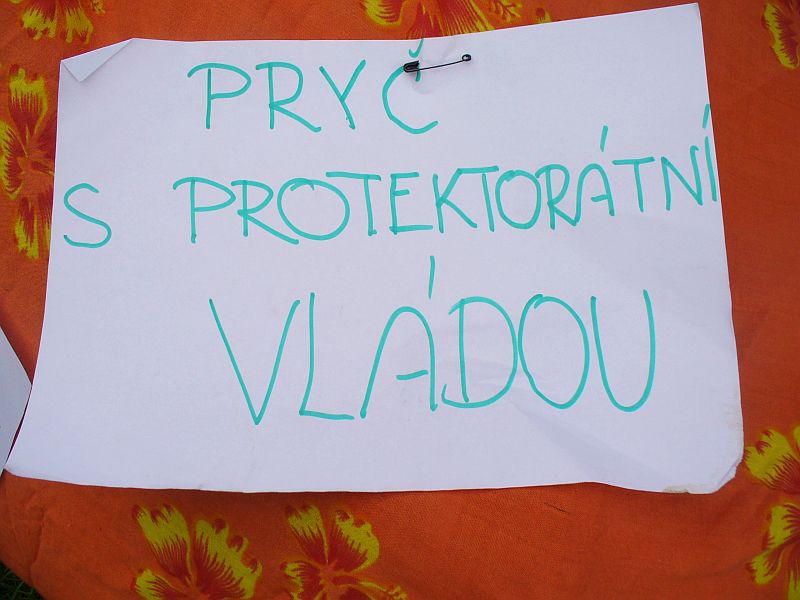 PRYČ
S PROTEKTORÁTNÍ
VLÁDOU